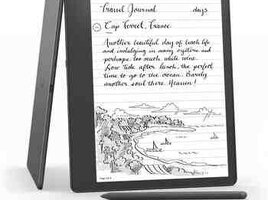 Travel Journal days
Cap Ferret, France
Another beautiful day of beach life
and indulging in many oysters and
perhaps, too much white wine.
Low tide after lunch, the perfect
time to go to the ocean. Barely
another soul there. Heaven!